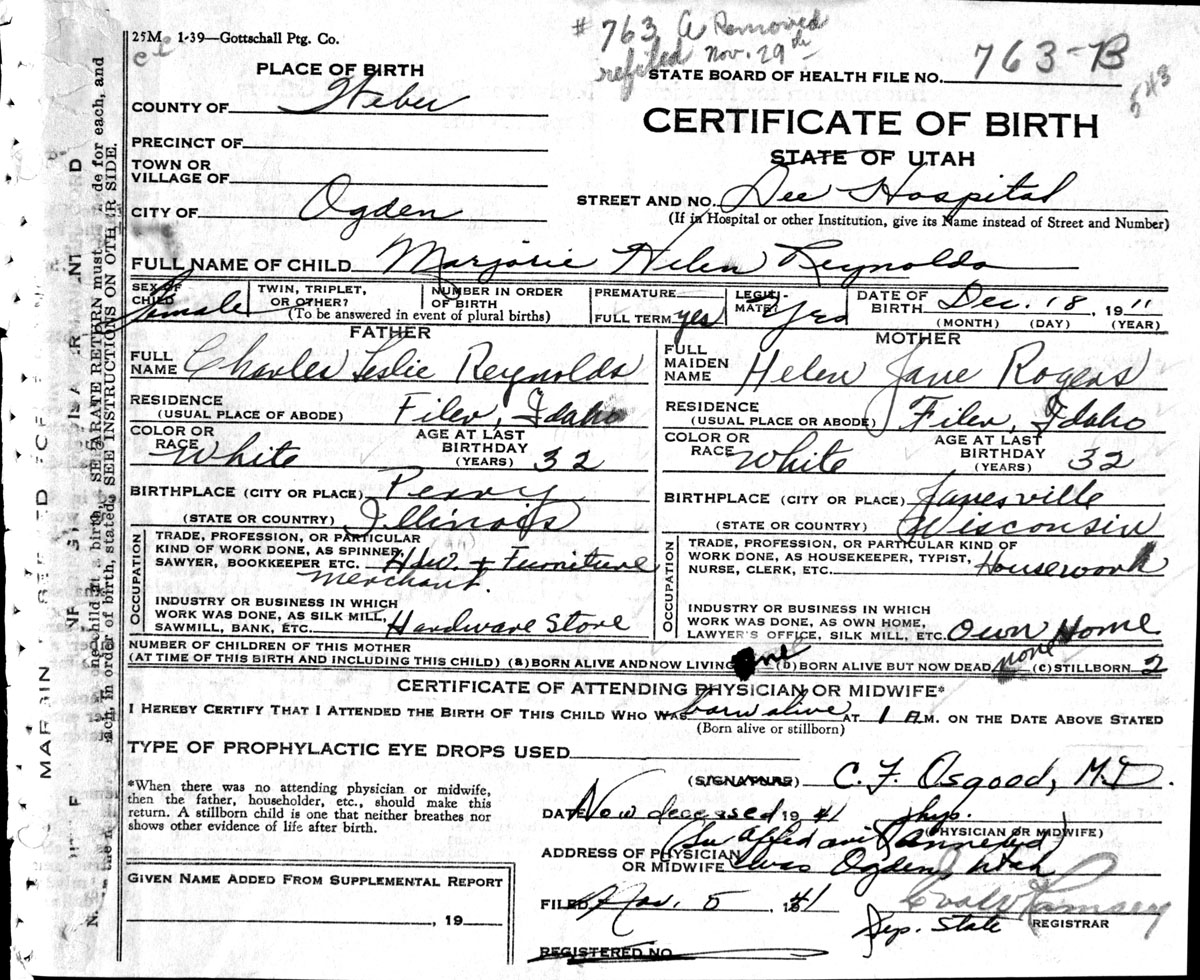 # 763 A Removed
refiled Nov. 29th
25M 1-39—Gottschall Ptg. Co.
PLACE OF BIRTH
STATE BOARD OF HEALTH FILE NO. 763-B
543
COUNTY OF Weber
CERTIFICATE OF BIRTH
PRECINCT OF
STATE OF UTAH
TOWN OR
VILLAGE OF
CITY OF Ogden
STREET AND NO. Dee Hospital
(If in Hospital or other Institution, give its Name instead of Street and Number)
FULL NAME OF CHILD Marjorie Helen Reynolds
SEX OF CHILD Female TWIN, TRIPLET, OR OTHER? NUMBER IN ORDER OF BIRTH
(To be answered in event of plural births)
PREMATURE
FULL TERM yes
LEGITIMATE? Yes
DATE OF BIRTH Dec. 18, 1911
(MONTH) (DAY) (YEAR)
FATHER
FULL NAME Charles Leslie Reynolds
RESIDENCE
(USUAL PLACE OF ABODE) Filer, Idaho
COLOR OR RACE White AGE AT LAST BIRTHDAY (YEARS) 32
BIRTHPLACE (CITY OR PLACE) Perry
(STATE OR COUNTRY) Illinois
OCCUPATION
TRADE, PROFESSION, OR PARTICULAR
KIND OF WORK DONE, AS SPINNER,
SAWYER, BOOKKEEPER ETC. Hdw. + Furniture
merchant.
INDUSTRY OR BUSINESS IN WHICH
WORK WAS DONE, AS SILK MILL,
SAWMILL, BANK, ETC. Hardware Store
MOTHER
FULL MAIDEN NAME Helen Jane Rogers
RESIDENCE
(USUAL PLACE OF ABODE) Filer, Idaho
COLOR OR RACE White AGE AT LAST BIRTHDAY (YEARS) 32
BIRTHPLACE (CITY OR PLACE) Janesville
(STATE OR COUNTRY) Wisconsin
OCCUPATION
TRADE, PROFESSION, OR PARTICULAR KIND OF
WORK DONE, AS HOUSEKEEPER, TYPIST,
NURSE, CLERK, ETC. Housework
INDUSTRY OR BUSINESS IN WHICH
WORK WAS DONE, AS OWN HOME,
LAWYER'S OFFICE, SILK MILL, ETC. Own Home
NUMBER OF CHILDREN OF THIS MOTHER
(AT TIME OF THIS BIRTH AND INCLUDING THIS CHILD) (a) BORN ALIVE AND NOW LIVING one (b) BORN ALIVE BUT NOW DEAD none (c) STILLBORN 2
CERTIFICATE OF ATTENDING PHYSICIAN OR MIDWIFE*
I HEREBY CERTIFY THAT I ATTENDED THE BIRTH OF THIS CHILD WHO WAS born alive AT 1 A.M. ON THE DATE ABOVE STATED
(Born alive or stillborn)
TYPE OF PROPHYLACTIC EYE DROPS USED
*When there was no attending physician or midwife,
then the father, householder, etc., should make this
return. A stillborn child is one that neither breathes nor
shows other evidence of life after birth.
(SIGNATURE) C. F. Osgood, M.D.
DATE Now deceased 1941 phys.
(PHYSICIAN OR MIDWIFE)
(See affidavit annexed)
ADDRESS OF PHYSICIAN
OR MIDWIFE was Ogden, Utah
GIVEN NAME ADDED FROM SUPPLEMENTAL REPORT
, 19
FILED Nov. 5, 1941
Ramsey
Dep. State REGISTRAR
REGISTERED NO.
SEE INSTRUCTIONS ON OTHER SIDE.